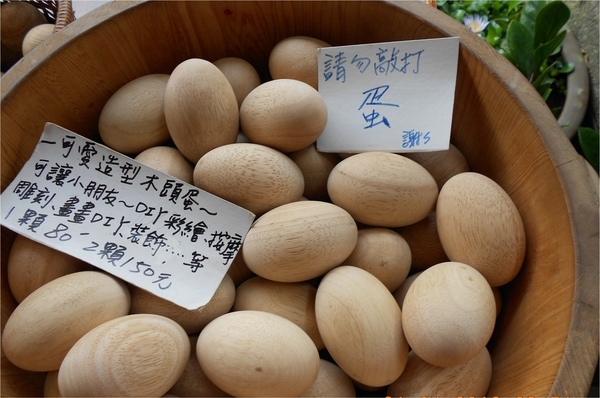 請勿敲打
蛋
謝s
～可愛造型木頭蛋～
可讓小朋友～DIY彩繪、按摩
雕刻、畫畫DIY、裝飾……等
1顆80、2顆150元